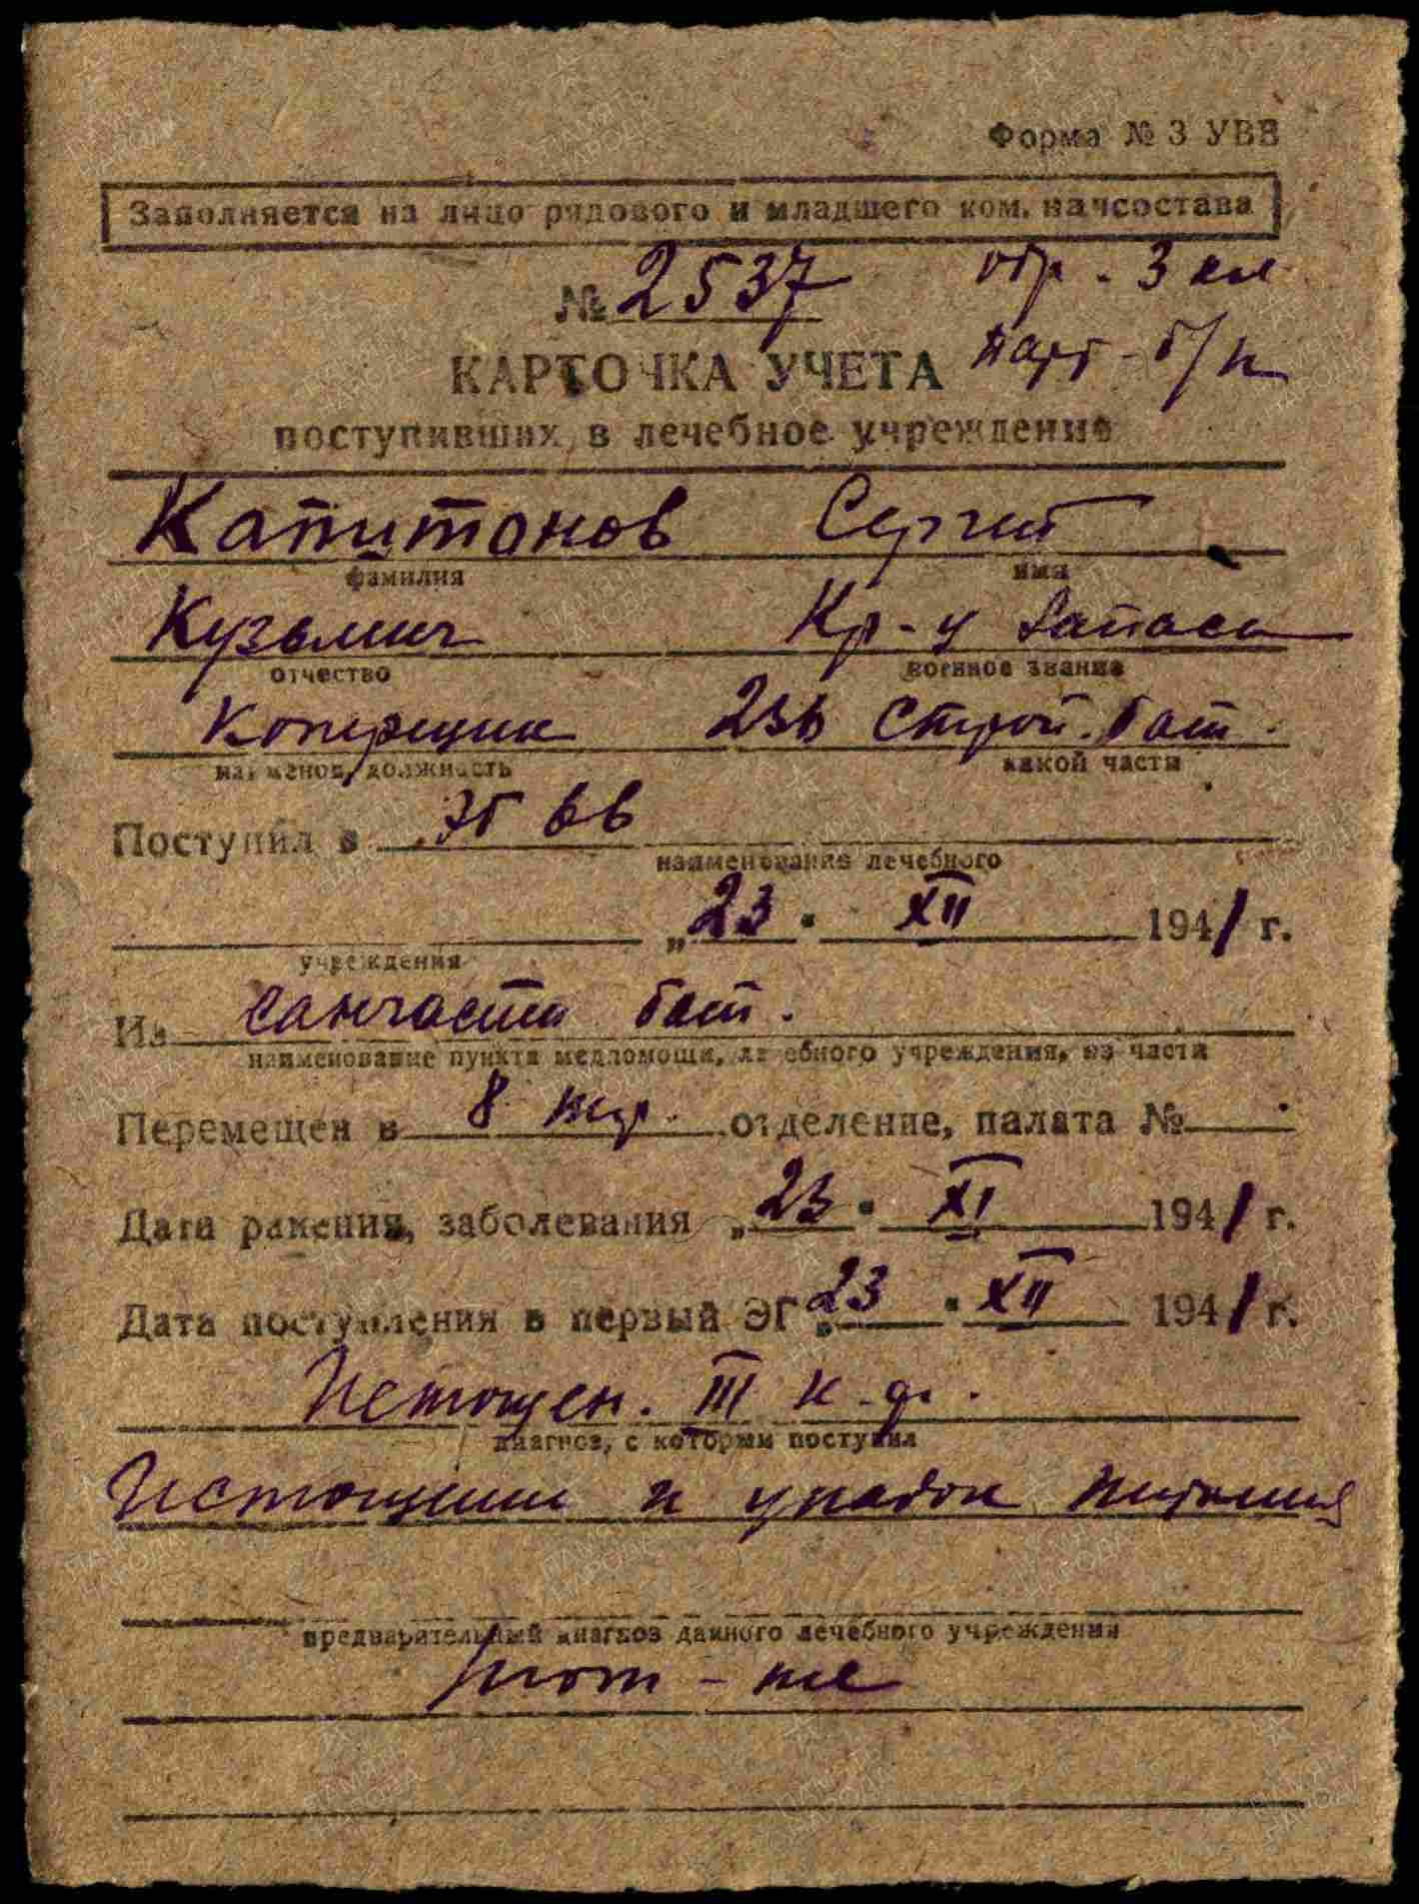 Форма № 3 УВВ
Заполняется на лицо рядового и младшего ком. начсостава
№ 2537 обр. 3 кл
КАРТОЧКА УЧЕТА парт - б/п
поступивших в лечебное учреждение
Капитонов Сергей
фамилия имя
Кузьмич Кр-ц запаса
отчество военное звание
Коперщик Строй. бат.
наименов. должность какой части
Поступил в
наименование лечебного
„23 " XII 1941 г.
учреждения
Из санчасти бат.
наименование пункта медпомощи, лечебного учреждения, из части
Перемещен в 8 отделение, палата №
Дата ранения, заболевания „23 " XI 1941 г.
Дата поступления в первый ЭГ „23 " XII 1941 г.
Истощен. III
диагноз, с которым поступил
Истощение и упадок питания
предварительный диагноз данного лечебного учреждения